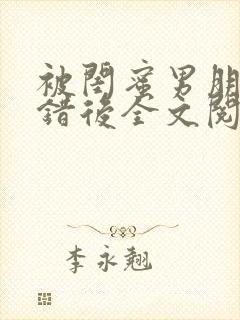 被閨蜜男朋
錯後全文閱
李永翹